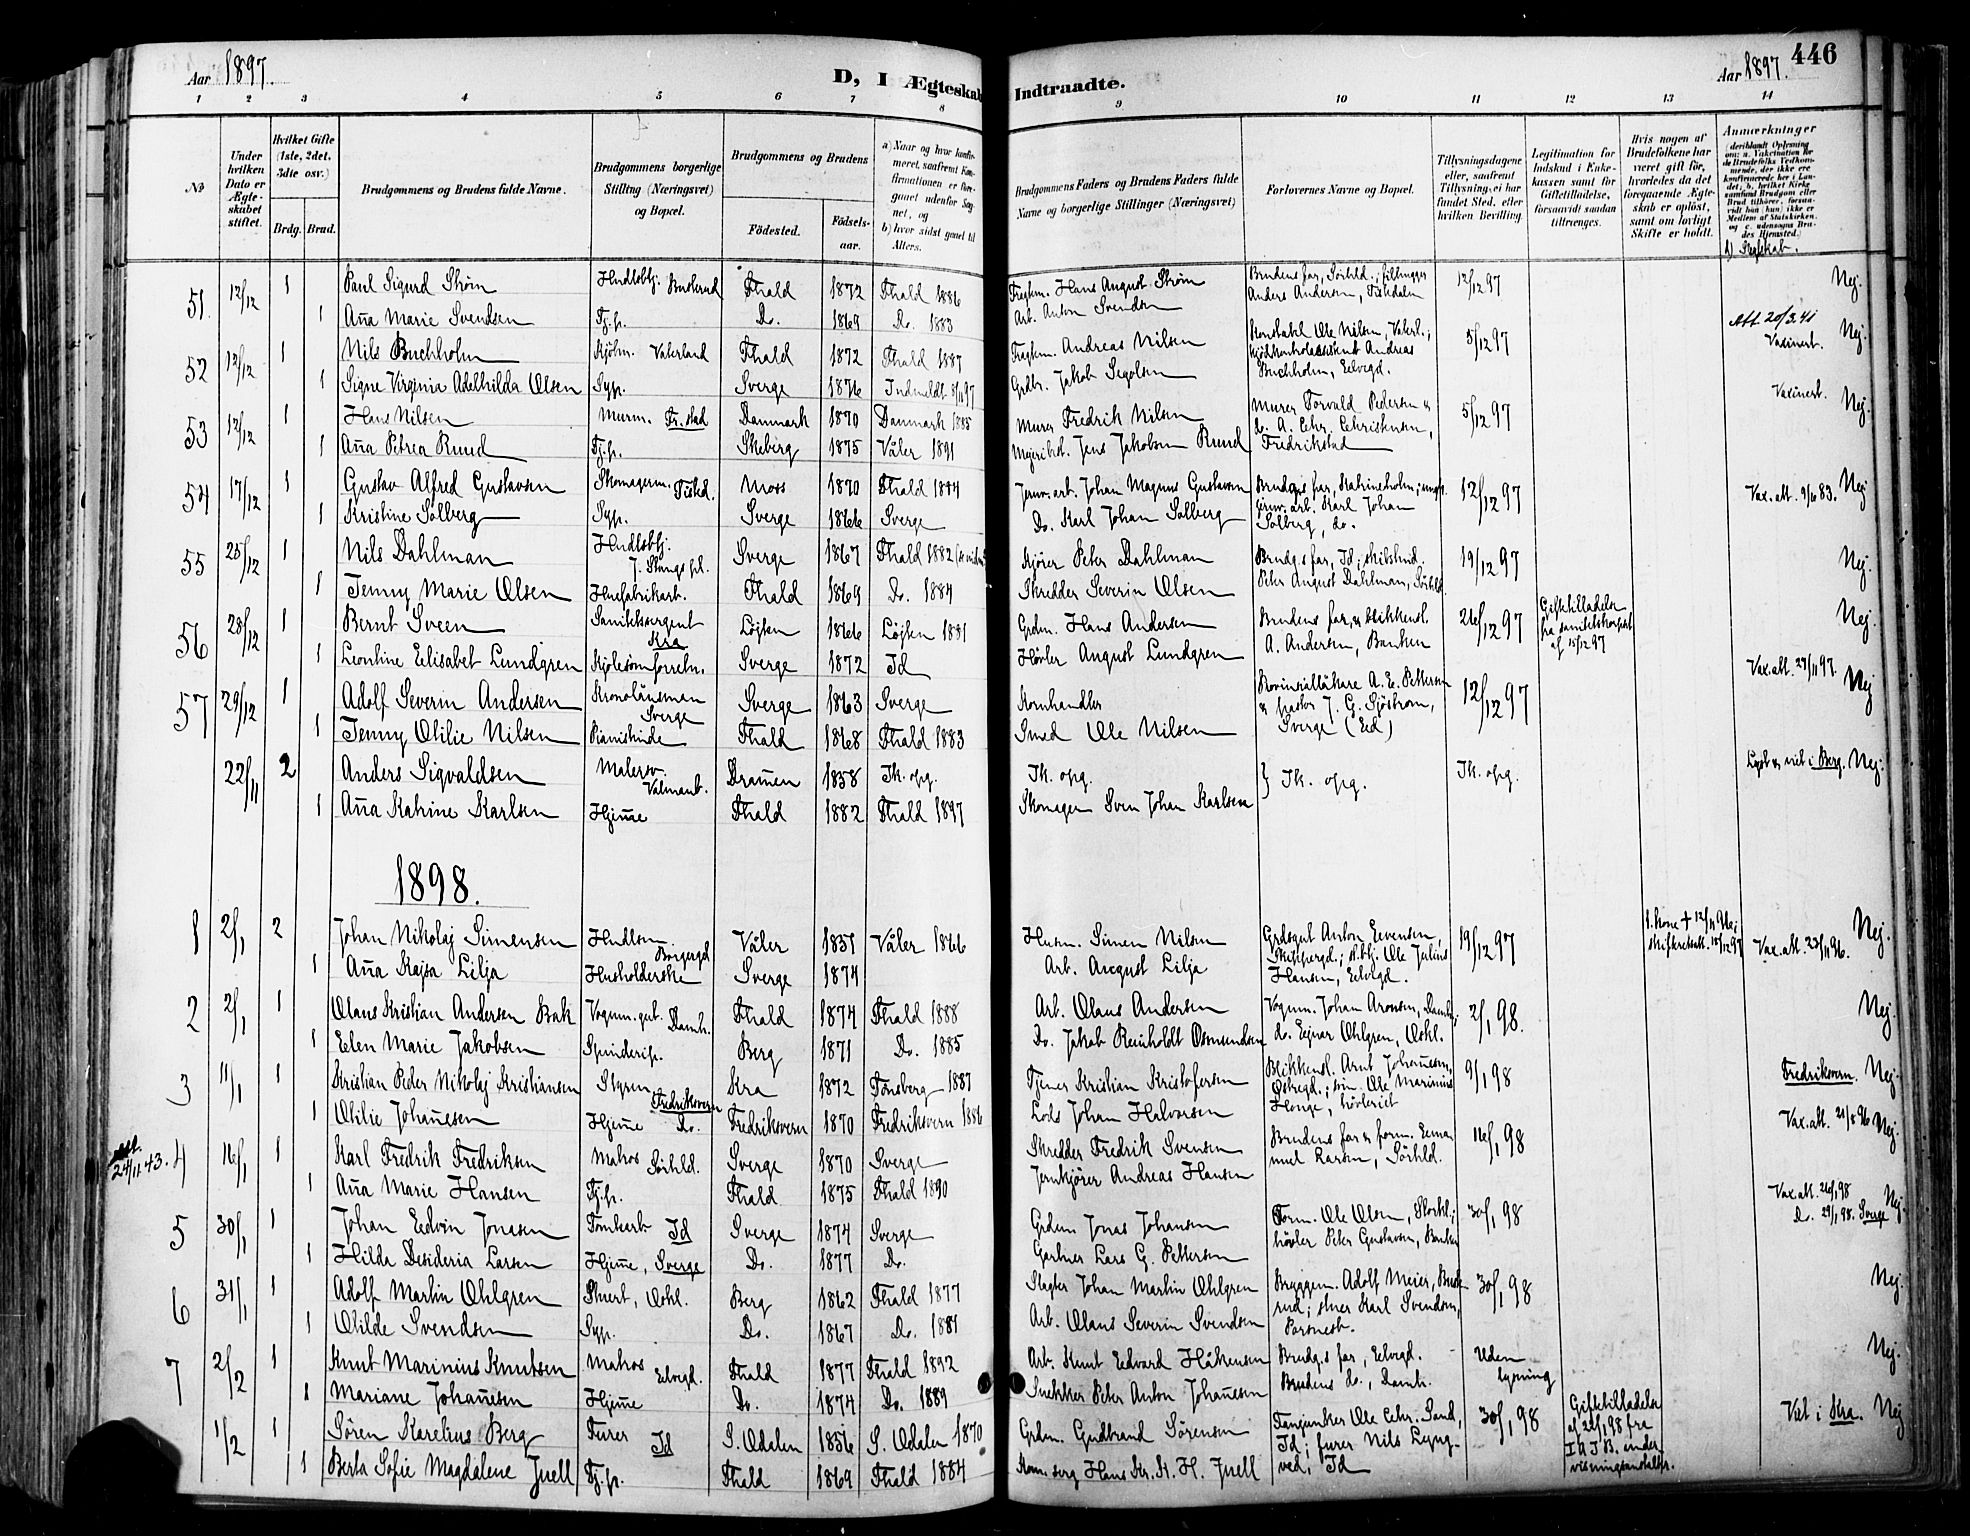 Aar 1897.
D, I Ægteskab Indtraadte.
Aar 1897.
446
1 2 3 4 5 6 7 8 9 10 11 12 13 14
No
Under hvilken Dato er Ægteskabet stiftet.
Hvilket Gifte (1ste, 2det, 3die osv.)
Brdg. Brud.
Brudgommens og Brudens fulde Navne.
Brudgommens borgerlige Stilling (Næringsvei) og Bopæl.
Brudgommens og Brudens
Fødested.
Fødselsaar.
Brudgommens Faders og Brudens Faders fulde Navne og borgerlige Stillinger (Næringsvei)
Forlovernes Navne og Bopæl.
Tillysningsdagene eller, saafremt Tillysning ei har fundet Sted, efter hvilken Bevilling.
Legitimation for Indskud i Enkekassen samt for Giftetilladelse, forsaavidt saadan tiltrænges.
Hvis nogen af Brudefolkene har været gift før, hvorledes da det foregaaende Ægteskab er opløst, samt om lovligt Skifte er holdt.
Anmærkninger
51. 12/12 1 Paul Sigurd Strøm Hndlsbtj. Buskerud Fhald 1872 Fhald 1886 Fragtm. Hans August Strøm Brudens far, Sørhld.; filhugger 12/12 97 Nej.
1 Aña Marie Svendsen Tj.p. Do. 1869 Do. 1883 Arb. Anton Svendsen Anders Andersen, Tistedalen
52 12/12 1 Nils Buchholm Kjøbm. Vaterland Fhald 1872 Fhald 1887 Fragtm. Andreas Nilsen Konstabl Ole Nilsen, Vaterl.; 5/12 97 Att. 20/3 41 Vaxinert. Nej.
1 Signe Virginia Adelhilda Olsen Syp. Sverge 1876 Indmeldt Grdbr. Jakob Andreas Buchholm, Eelvegd. Vaxinert.
53 12/12 1 Hans Nilsen Murm. Fr.stad Danmark 1870 Danmark 1885 Murer Fredrik Nilsen Murer Torvald Pedersen & 5/12 97 Nej.
1 Aña Petrea Ruud Tj.p. Skeberg 1875 Våler 1891 Mejeribst. Jens Jakobsen Ruud do. A. Chr. Christensen, Fredrikstad
54 17/12 1 Gustav Alfred Gustavsen Skomagerm. Tistd. Moss 1870 Fhald 1884 Jernv.arb. Johan Magnus Gustavsen Brudgs far, Katrineholm; 12/12 97 Vax.att. 9/6 83. Nej
1 Kristine Solberg Syp. Sverge 1866 Sverge Do. Karl Johan Solberg jernv.arb. Karl Johan Solberg, do.
55 25/12 1 Nils Dahlman Hndlsbtj. J. Stangs pl. Sverge 1867 Fhald 1882 Kjører Peter Dahlman Brudg.s far, Id; 19/12 97 Nej.
1 Jenny Marie Olsen Huefabrikarb. Fhald 1869 Do. 1884 Skredder Severin Olsen Peter August Dahlman, Sørhld.
56 28/12 1 Bernt Sveen Sanitetssergent Kra Løjten 1866 Løjten 1881 Grdm. Hans Andersen Brudens far & blikkensl. 26/12 97 Giftetilladelse fra sanitetskorpset af 15/12 97 Nej.
1 Leontine Eelisabet Lundgren Kjolesömforretn. Sverge 1872 Id Høvler August Lundgren A. Andersen, Banken
57 29/12 1 Adolf Severin Andersen Kronolänsman Sverge Sverge 1863 Sverge Kornhandler Provinsialläkare A. E. Petterson 12/12 97 Vax.att. 27/11 97. Nej
1 Jenny Otilie Nilsen Pianistinde Fhald 1868 Fhald 1883 Smed Ole Nilsen & pastor J. G. Sjöstrom, Sverge (Eed)
22/11 2 Anders Sigvaldsen Malersv. Valmant. Dramen 1858 Ik. opg. Ik. opg. } Ik. opg. Ik. opg. Lyst & viet i Berg. Nej.
1 Aña Katrine Karlsen Hjemme Fhald 1882 Fhald 1897 Skomager Sven Johan Karlsen
1898.
1 2/1 2 Johan Nikolaj Simensen Hndlsm. Borgergd Våler 1851 Våler 1866 Husm. Simen Nilsen Grdsgut Anton Evensen, 19/12 97 1. kone † 12/11 96; skifteatt. 18/12 97 Vax.att. 23/11 96. Nej.
1 Aña Kajsa Lilja Husholderske Sverge 1874 Arb. August Lilja Skippergd.; st.btj. Ole Julius Hansen, Eelvegd.
2 2/1 1 Olaus Kristian Andersen Bak Vognm.gut. Damh. Fhald 1874 Fhald 1888 Arb. Olaus Andersen Vognm. Johan Aronsen, Damh.; 2/1 98. Nej.
1 Eelen Marie Jakobsen Spinderip. Berg 1871 Do. 1885 Do. Jakob Reinholdt Osmundsen do. Eejnar Ohlgren, Oskl.
3 11/1 1 Kristian Peder Nikolaj Kristiansen Styrm. Fredriksvern Kra 1872 Tønsberg 1887 Tjener Kristian Kristofersen Blikkensl. Arnt Johañesen, 9/1 98 Fredriksvern. Nej.
1 Otilie Johañesen Hjemme Do. Fredriksvern 1870 Fredriksvern 1886 Lods Johan Halvorsen Østregd.; Ole Marinius Hauge, høvleriet
Att. 24/11 43. 4 16/1 1 Karl Fredrik Fredriksen Matros Sørhld. Sverge 1870 Sverge Skredder Fredrik Svensen Brudens far & form. Eemanuel Larsen, Sørhld. 16/1 98 Vax.att. 21/8 96 Nej.
1 Aña Marie Hansen Tj.p. Fhald 1875 Fhald 1890 Jernkjører Andreas Hansen
5 30/1 1 Johan Eedvin Jonasen Tomtearb. Id Sverge 1874 Sverge Grdm Jonas Johansen Form. Ole Olsen, Storkl.; 30/1 98 Vax.att. 26/1 98 Nej.
1 Hilda Desideria Larsen Hjeme, Sverge Do. 1877 Do. Gartner Lars G. Pettersen høvler Peter Gustavsen, Banken Do. 29/1 98. Sverge
6 31/1 1 Adolf Martin Ohlgren Stuert, Oskl. Berg 1862 Fhald 1877 Slagter Johan Martin Ohlgren Bryggem. Adolf Meier, Buskerud; Karl Svendsen, 30/1 98 Nej.
1 Otilde Svendsen Syp. Do. 1867 Do. 1881 Arb. Olaus Severin Svendsen
7 2/2 1 Knut Marinius Knutsen Matros Eelvegd. Fhald 1877 Fhald 1892 Arb. Knut Eedvard Håkensen Brudg.s far, Eelvegd. Uden lysning Nej.
1 Mariane Johañesen Hjeme Do. 1874 Do. 1889 Snekker Peter Anton Johañesen Brudens do., Damh.
1/2 1 Sören Karelius Berg Furer Id S. Odalen 1856 S. Odalen 1870 Grdm. Gudbrand Sørensen Fanejunker Ole Chr. Sand, 30/1 98 Giftetilladelse af 22/1 98 fra Viet i Kra. Nej
1 Berta Sofie Magdalene Juell Tj.p. Fhald 1869 Fhald 1884 Hans H. Juell Id; furer Nils Lyngved, Id